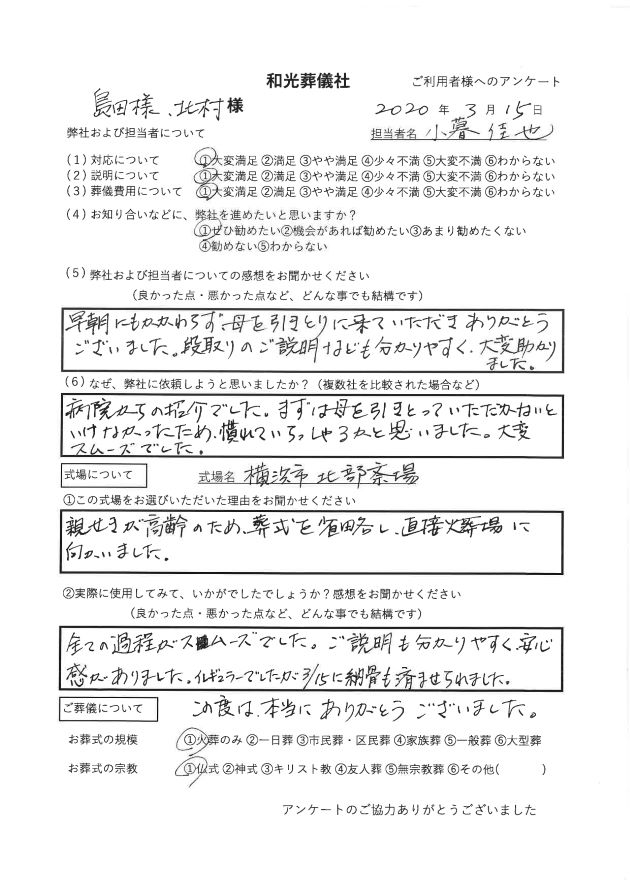 和光葬儀社 ご利用者様へのアンケート
島田様、北村様 2020年3月15日
弊社および担当者について 担当者名 小暮 佳也
(1) 対応について ①大変満足 ②満足 ③やや満足 ④少々不満 ⑤大変不満 ⑥わからない
(2) 説明について ①大変満足 ②満足 ③やや満足 ④少々不満 ⑤大変不満 ⑥わからない
(3) 葬儀費用について ①大変満足 ②満足 ③やや満足 ④少々不満 ⑤大変不満 ⑥わからない
(4) お知り合いなどに、弊社を進めたいと思いますか?
①ぜひ勧めたい②機会があれば勧めたい③あまり勧めたくない
④勧めない⑤わからない
(5) 弊社および担当者についての感想をお聞かせください
(良かった点・悪かった点など、どんな事でも結構です)
早朝にもかかわらず、母を引きとりに来ていただきありがとう
ございました。段取りのご説明なども分かりやすく、大変助かり
ました。
(6) なぜ、弊社に依頼しようと思いましたか?(複数社を比較された場合など)
病院からの紹介でした。まずは母を引きとっていただかないと
いけなかったため、慣れていらっしゃるかと思いました。大変
スムーズでした。
式場について 式場名 横浜市 北部斎場
①この式場をお選びいただいた理由をお聞かせください
親せきが高齢のため、葬式を省略し、直接火葬場に
向かいました。
②実際に使用してみて、いかがでしたでしょうか?感想をお聞かせください
(良かった点・悪かった点など、どんな事でも結構です)
全ての過程がスムーズでした。ご説明も分かりやすく、安心
感がありました。イレギュラーでしたが3/15に納骨も済ませられました。
ご葬儀について この度は、本当にありがとうございました。
お葬式の規模 ①火葬のみ ②一日葬 ③市民葬・区民葬 ④家族葬 ⑤一般葬 ⑥大型葬
お葬式の宗教 ①仏式 ②神式 ③キリスト教 ④友人葬 ⑤無宗教葬 ⑥その他( )
アンケートのご協力ありがとうございました